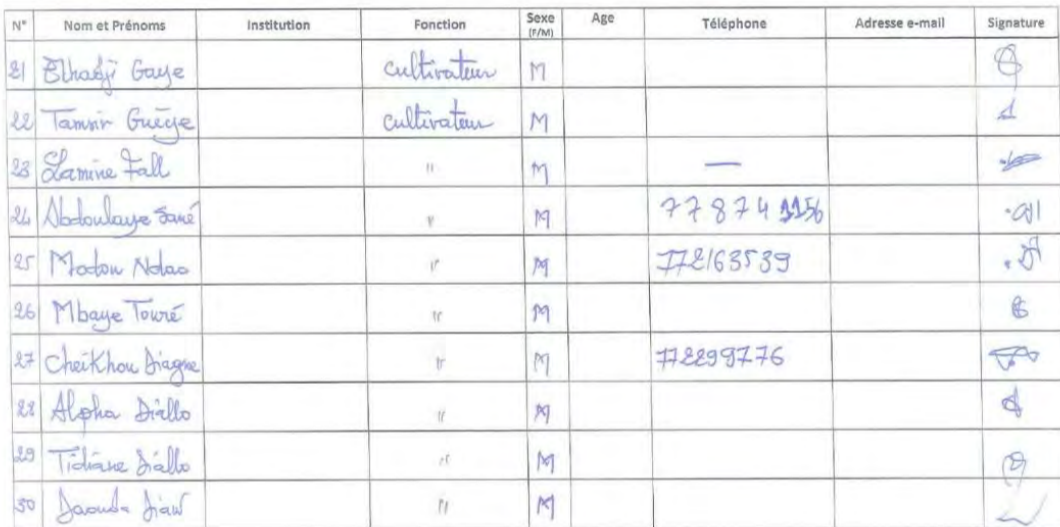 N° Nom et Prénoms Institution Fonction Sexe (F/M) Age Téléphone Adresse e-mail Signature
21 Elhadji Gaye cultivateur M
22 Tamsir Guèye cultivateur M
23 Lamine Fall " M —
24 Abdoulaye Sané " M 77 874 1156
25 Modou Ndao " M 772163539
26 Mbaye Touré " M
27 Cheikhou Diagne " M 772299776
28 Alpha Diallo " M
29 Tidiane Diallo " M
30 Daouda Diaw " M